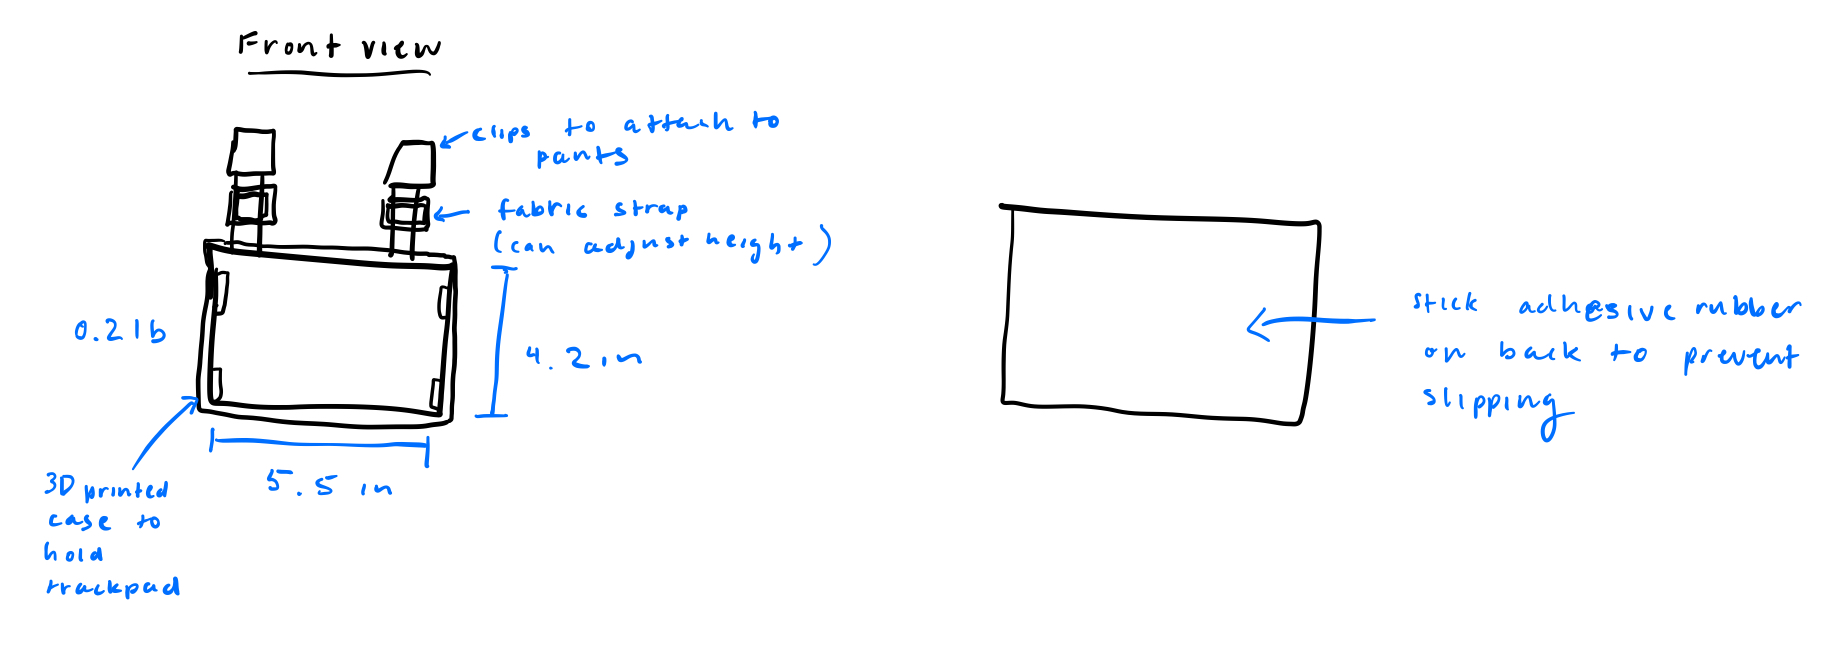 Front view
clips to attach to
pants
fabric strap
(can adjust height)
0.2 lb
4.2 in
5.5 in
3D printed
case to
hold
trackpad
stick adhesive rubber
on back to prevent
slipping